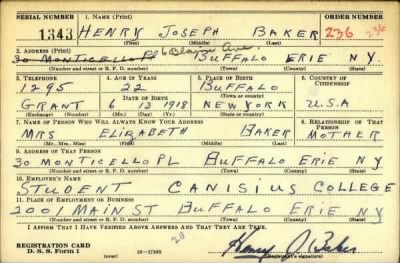 SERIAL NUMBER 1. NAME (Print) ORDER NUMBER
1343 HENRY JOSEPH BAKER 236 236
(First) (Middle) (Last)
2. ADDRESS (Print) 6 Blaine Ave.
30 MONTICELLO PL BUFFALO ERIE N.Y.
(Number and street or R. F. D. number) (Town) (County) (State)
3. TELEPHONE 4. AGE IN YEARS 5. PLACE OF BIRTH 6. COUNTRY OF CITIZENSHIP
1295 22 BUFFALO
(Town or county)
DATE OF BIRTH
GRANT 6 13 1918 NEW YORK U.S.A
(Exchange) (Number) (Mo.) (Day) (Yr.) (State or country)
7. NAME OF PERSON WHO WILL ALWAYS KNOW YOUR ADDRESS 8. RELATIONSHIP OF THAT PERSON
MRS ELIZABETH BAKER MOTHER
(Mr., Mrs., Miss) (First) (Middle) (Last)
9. ADDRESS OF THAT PERSON
30 MONTICELLO PL BUFFALO ERIE NY
(Number and street or R. F. D. number) (Town) (County) (State)
10. EMPLOYER'S NAME
STUDENT CANISIUS COLLEGE
11. PLACE OF EMPLOYMENT OR BUSINESS
2001 MAIN ST BUFFALO ERIE NY
(Number and street or R. F. D. number) (Town) (County) (State)
I AFFIRM THAT I HAVE VERIFIED ABOVE ANSWERS AND THAT THEY ARE TRUE.
REGISTRATION CARD
D. S. S. Form 1 (over) 16-17105 Henry J. Baker
(Registrant's signature)